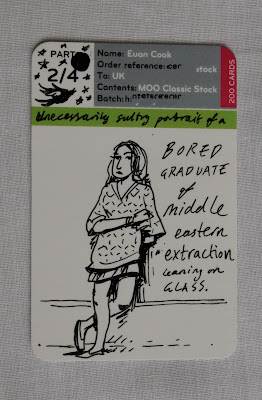 PART
2/4
Name: Euan Cook
Order reference:
stock
To: UK
Contents: MOO Classic Stock
Batch:
200 CARDS
Unnecessarily sultry portrait of a
BORED
GRADUATE
of
middle
eastern
extraction
leaning on
GLASS.